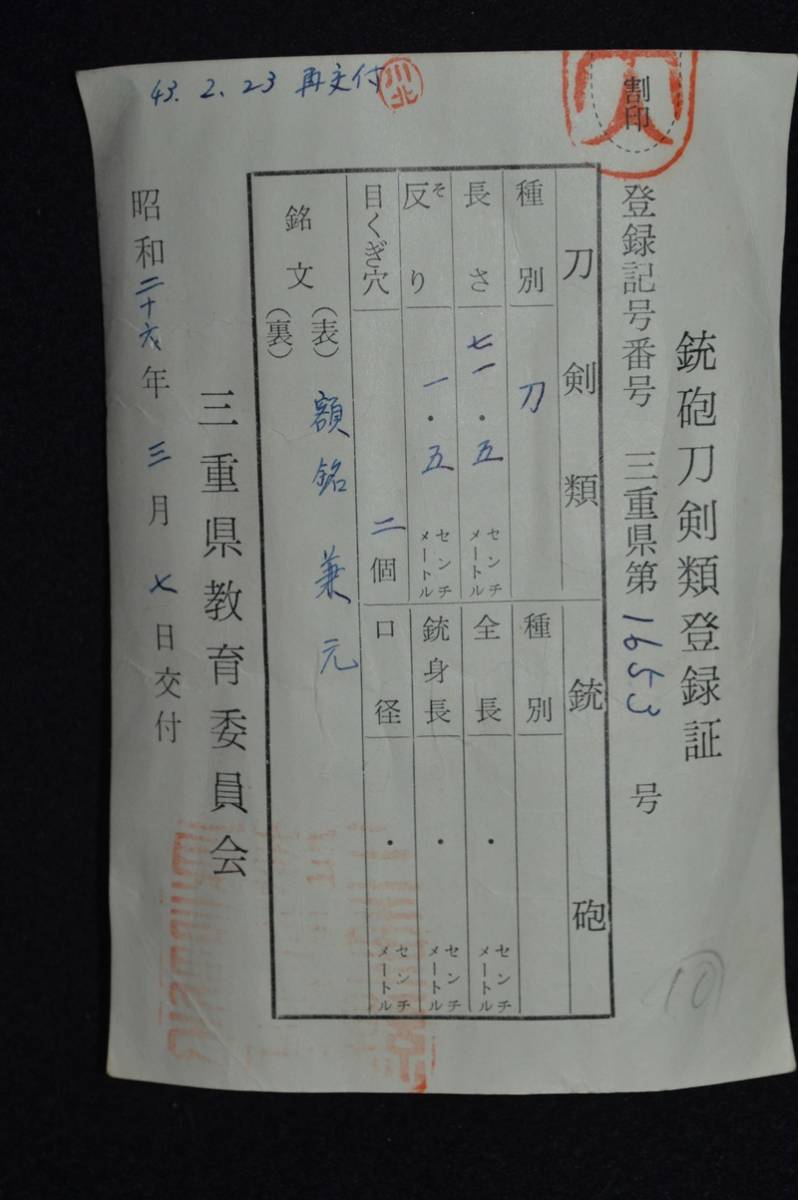 43. 2. 23 再交付
川北
割印
銃砲刀剣類登録証
登録記号番号 三重県第1653号
刀剣類
種別 刀
長さ 七一・五 センチメートル
反り そ 一・五 センチメートル
目くぎ穴 二個
銘文(表) 額銘 兼元
(裏)
銃砲
種別
全長 ・ センチメートル
銃身長 ・ センチメートル
口径 ・ センチメートル
三重県教育委員会
昭和二十六年三月七日交付
10